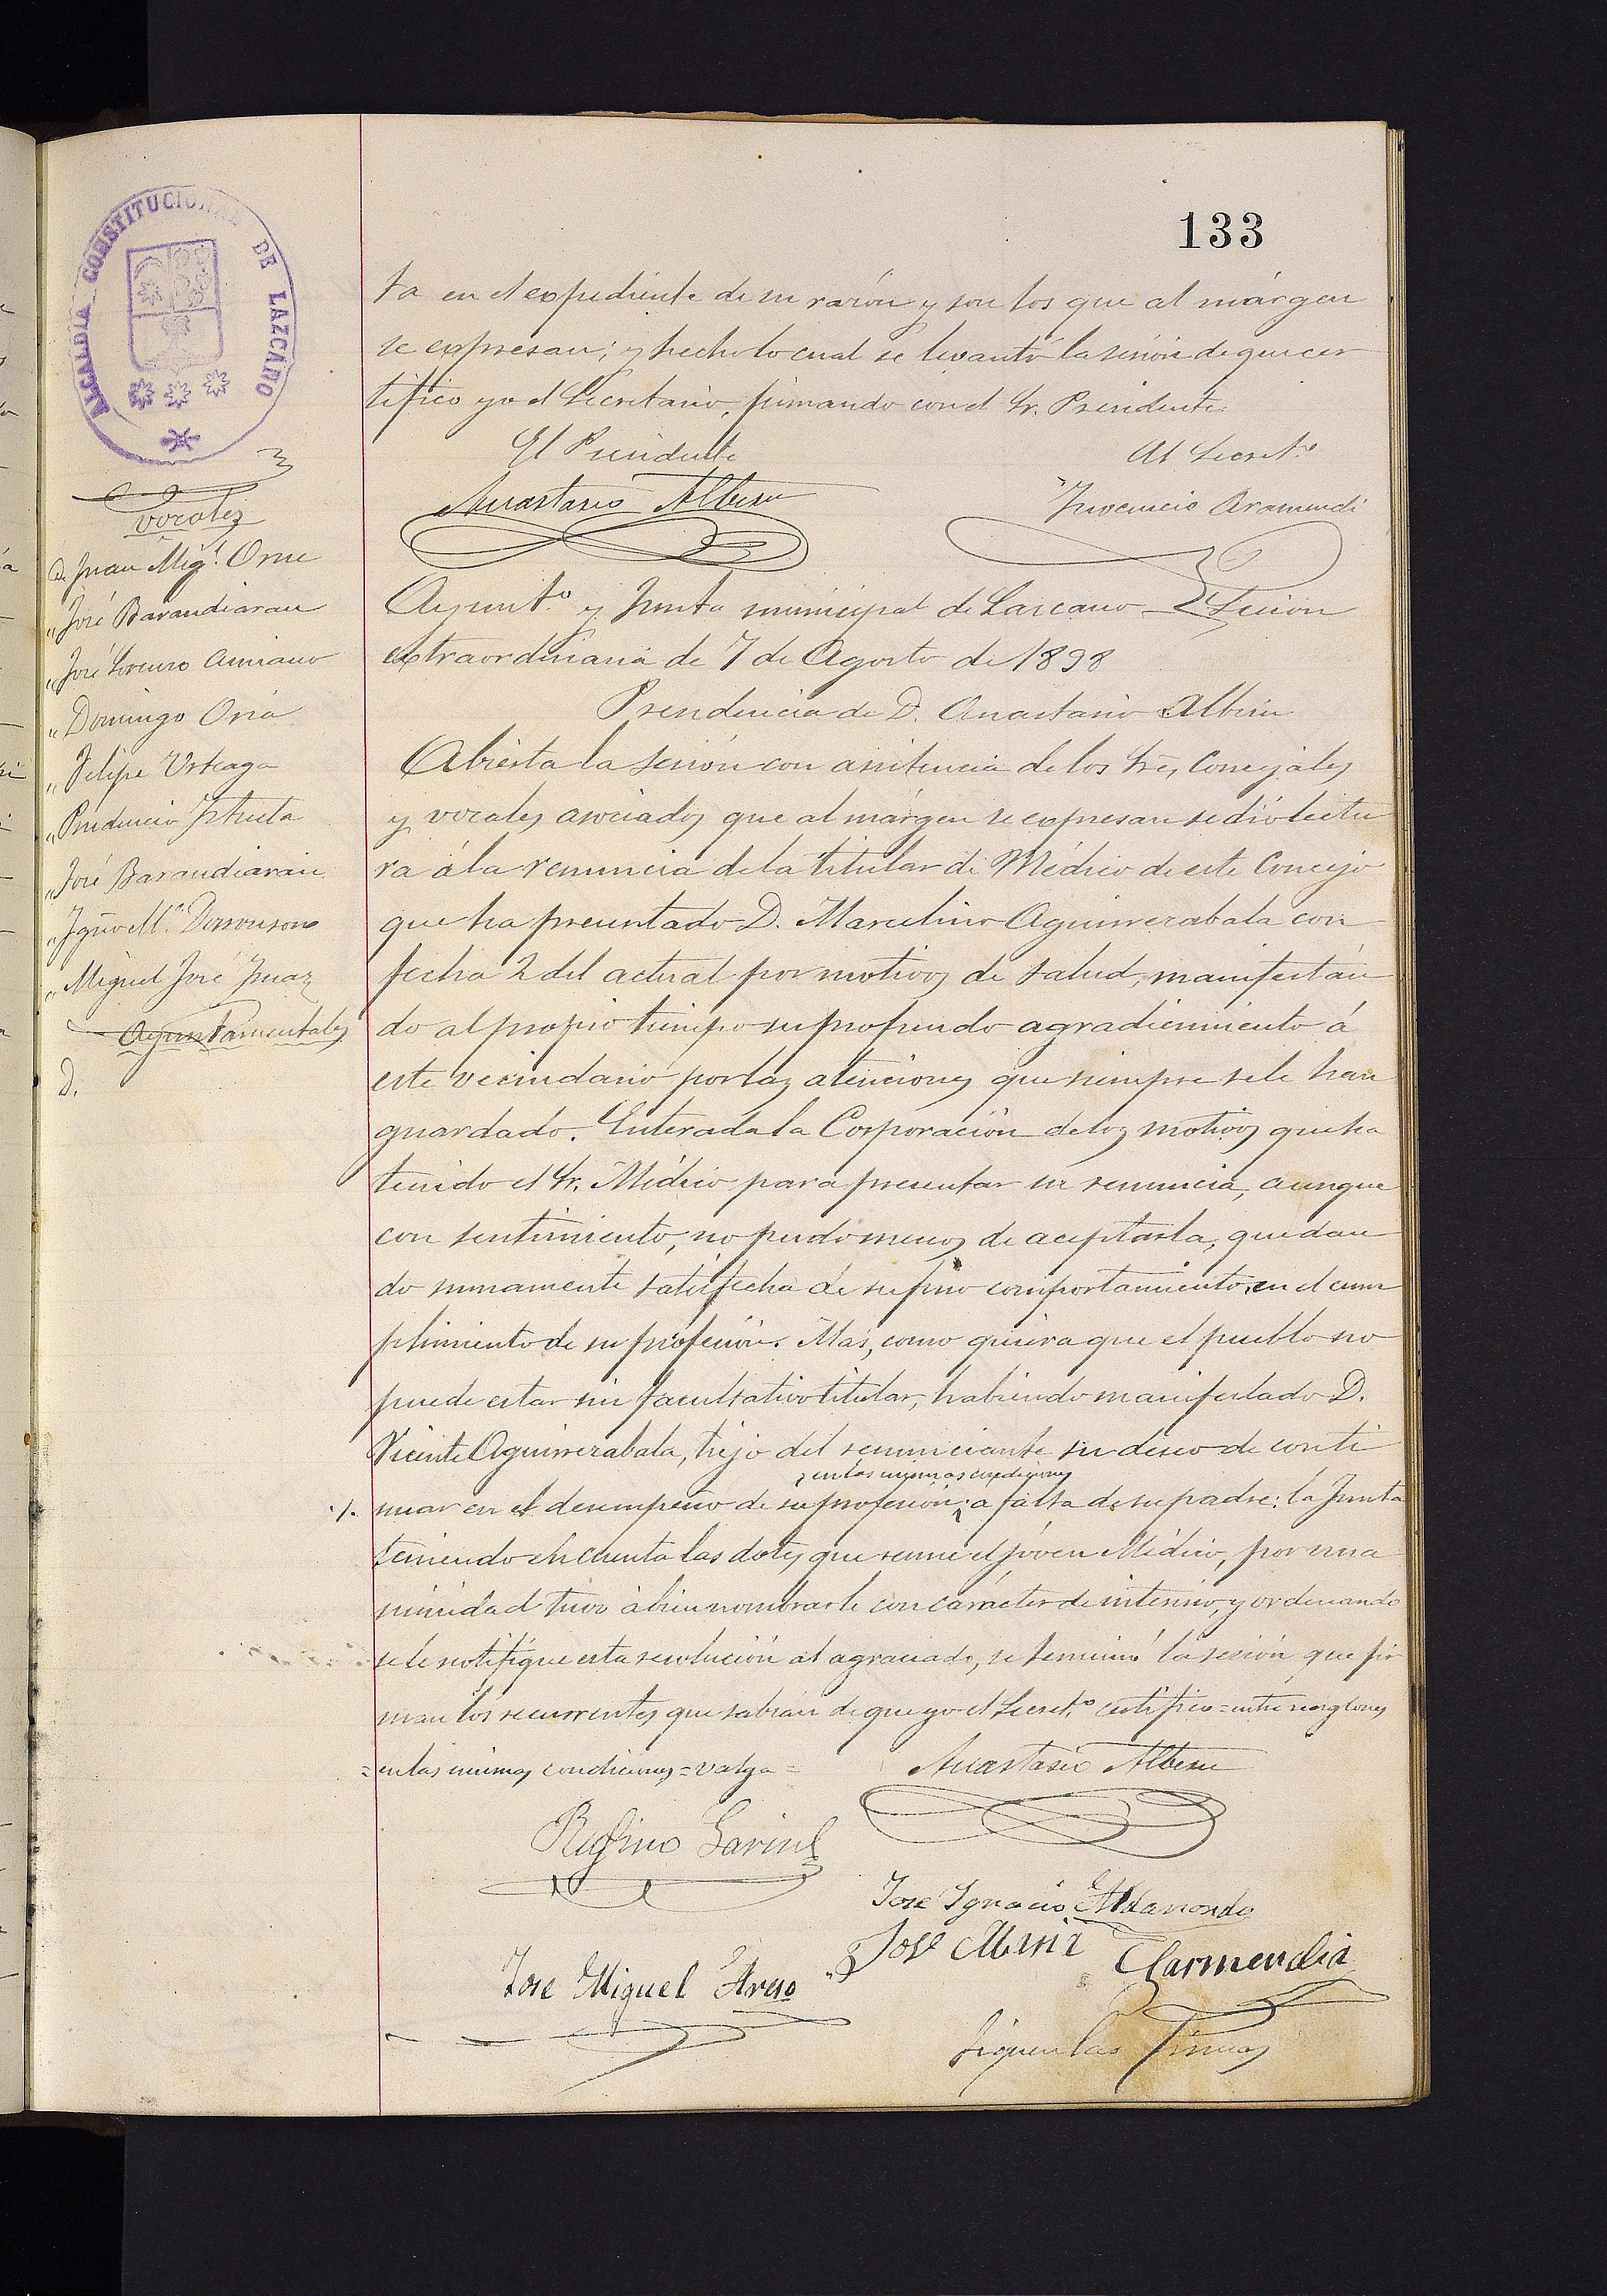 133
ALCALDIA CONSTITUCIONAL DE LAZCANO
ta en el expediente de su razón y son los que al márgen
se expresan; y hecho lo cual se levantó la sesión de que cer
tifico yo el Secretario, firmando con el Sr. Presidente.
El Presidente
El Secret.º
Anastasio Albisu
Inocencio Aramendi
Vocales
D. Juan Mig.l Orue
„ José Barandiaran
„ José Lorenzo Aurrano
„ Domingo Oria
„ Felipe Urteaga
„ Prudencio Iztueta
„ José Barandiaran
„ Igno M.ª Dorronsoro
„ Miguel José Imaz
Ayuntamentales
D.
Ayunt.º y Junta municipal de Lazcano = Sesión
extraordinaria de 7 de Agosto de 1898
Presidencia de D. Anastasio Albisu
Abierta la sesión con asistencia de los Sres Concejales
y vocales asociados que al márgen se expresan se dió lectu
ra á la renuncia de la titular de Médico de este Concejo
que ha presentado D. Marcelino Aguirrezabala con
fecha 2 del actual por motivos de salud, manifestán
do al propio tiempo su profundo agradicimiento á
este vecindario por las atenciones que siempre se le han
guardado. Enterada la Corporación de los motivos que ha
tenido el Sr. Médico para presentar su renuncia, aunque
con sentimiento, no pudo menos de aceptarla, quedan
do sumamente satisfecha de su fino comportamiento en el cum
plimiento de su profesión. Mas, como quiera que el pueblo no
puede estar sin facultativo titular, habiendo manifestado D.
Vicente Aguirrezabala, hijo del renunciante su deseo de conti
, en las mismas condiciones
./. nuar en el desempeño de su profesion, a falta de su padre: la Junta
teniendo en cuenta las dotes que reune el jóven Médico, por una
nimidad tuvo á bien nombrarle con carácter de interino, y ordenando
se le notifique esta resolución al agraciado, se terminó la sesión que fir
man los recurrentes que sabian de que yo el Secret.º certifico = entre renglones
= en las mismas condiciones = valga =
Anastasio Albisu
Rufino Garin
Jose Ignacio Aldanondo
José Miguel Areso
José Garmendia
Siguen las firmas